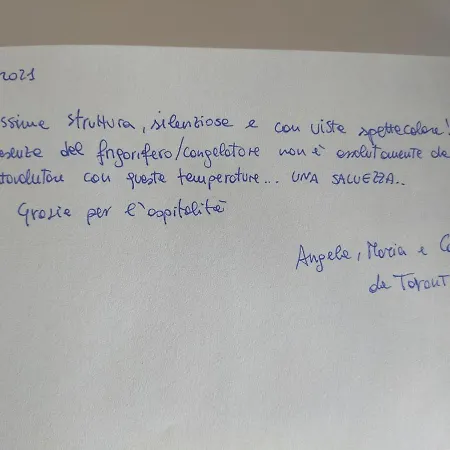 2021
ssima struttura, silenziosa e con vista spettacolare!
esenza del frigorifero/congelatore non è assolutamente da
tovalutare con queste temperature... UNA SALVEZZA..
Grazie per l'ospitalità
Angela, Maria e
da Tarant